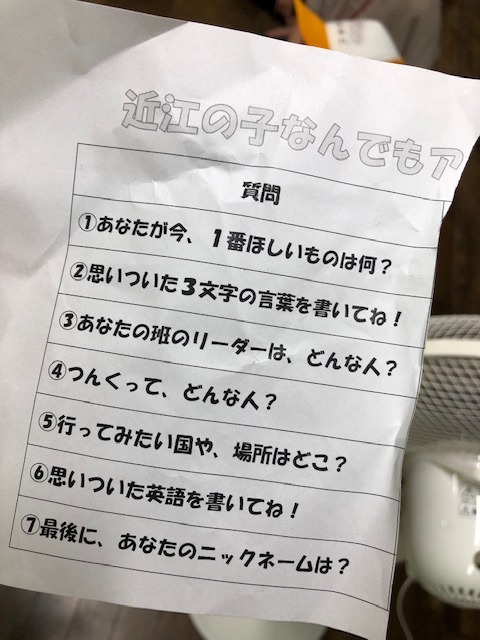 近江の子なんでもア
質問
①あなたが今、1番ほしいものは何？
②思いついた3文字の言葉を書いてね！
③あなたの班のリーダーは、どんな人？
④つんくって、どんな人？
⑤行ってみたい国や、場所はどこ？
⑥思いついた英語を書いてね！
⑦最後に、あなたのニックネームは？